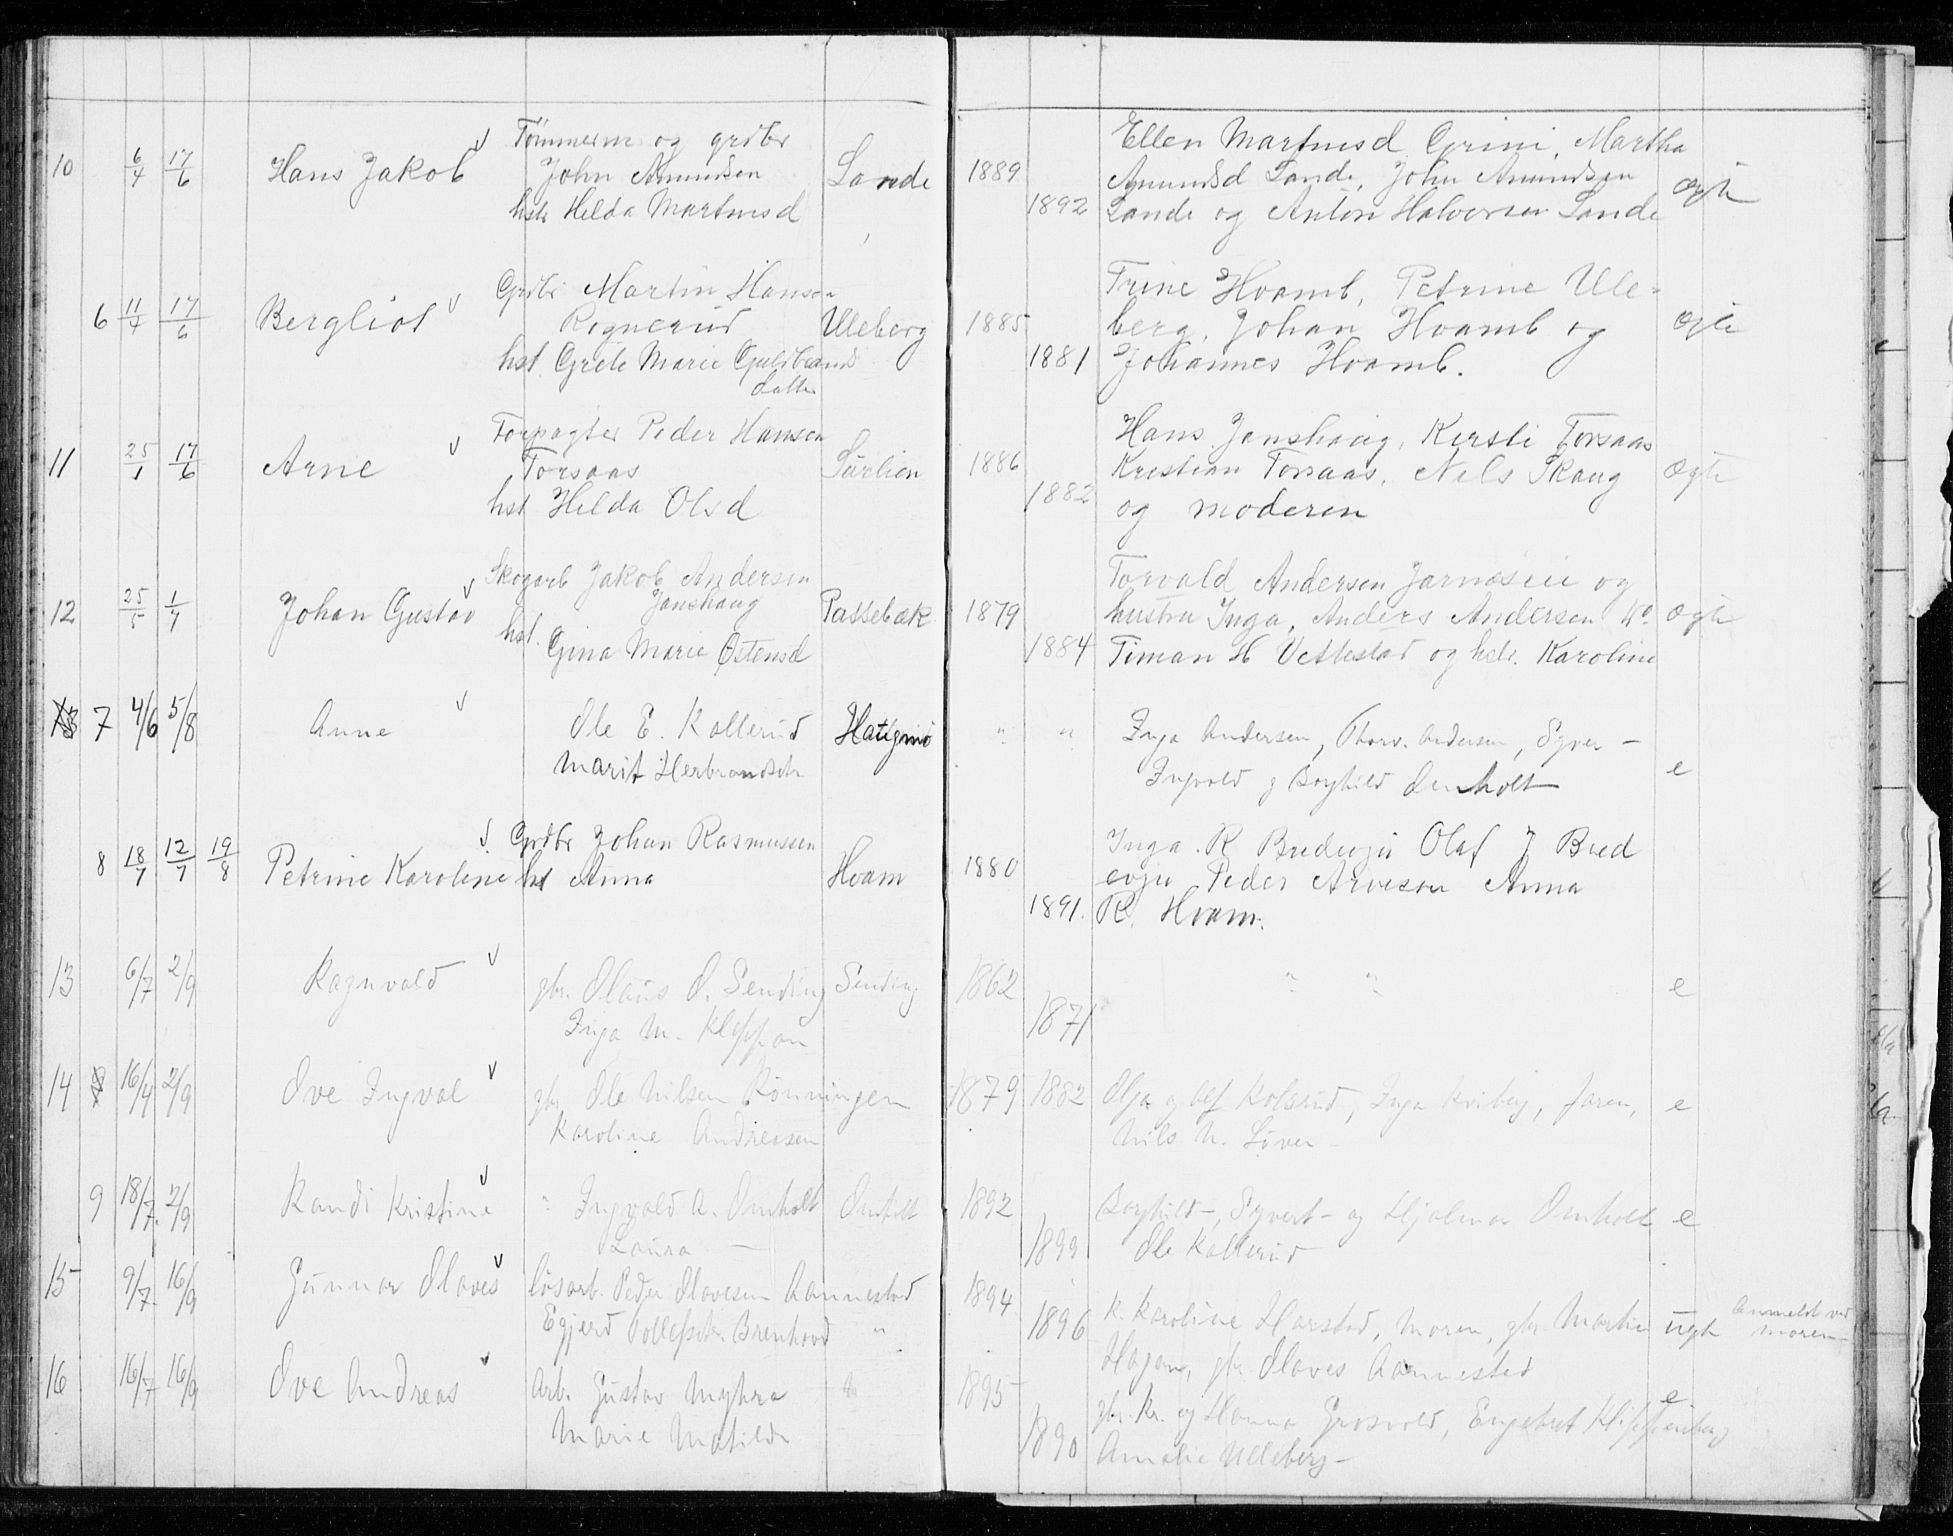 10 6/4 17/6 Hans Jakob Tömmerm og grdbr
John Amundsen
hstr Hilda Martinsd Sande 1889 1892
Ellen Martinsd Grini, Martha
Amundsd Sande, John Amundsen
Sande og Anton Halvorsen Sande ægte
6 11/4 17/6 Bergliot Grdbr Martin Hansen
Rognerud
hst. Grete Marie Guldbrands
datter Ulleberg 1885 1881
Trine Hvamb, Petrine Ule-
berg, Johan Hvamb og
Johannes Hvamb. ægte
11 25/1 17/6 Arne Forpagter Peder Hansen
Torsaas
hst Hilda Olsd Sörlien 1886 1882
Hans Janshaug, Kersti Torsaas
Kristian Torsaas, Nils Skaug
og moderen ægte
12 25/5 1/7 Johan Gustav Skogarb Jakob Andersen
Janshaug
hst. Gina Marie Østensd Passebæk 1879 1884
Torvald Andersen Jarnæseie og
hustru Inga, Anders Andersen
Timan H Vettestad og hstr. Karoline ægte
7 4/6 5/8 Anne Ole E. Kollerud
Marit Herbrandsdtr " "
Inga Andersen, Thorv. Andersen, Syver -
Ingvald og Borghild Omholt e
8 18/7 12/7 19/8 Petrine Karoline Grdbr Johan Rasmussen
hst Anna Hvam 1880 1891.
Inga R Olaf J Bred
Peder Arvesen Anna
R. Hvam.
13 6/7 2/9 Ragnvald gbr. Olaus O. Sending
Inga M. Kleppan Sending 1862 1871
" " e
14 16/4 2/9 Ove Ingval gbr. Ole Nilsen Rönningen
Karoline Andreasen 1879 1882
Olga og Alf Kolsrud, Inga Kviberg, faren,
Nils N. Löver - e
9 18/7. 2/9 Randi Kristine " Ingvald A. Omholt
Laura — Omholt 1892 1899
Borghild -, Syvert - og Hjalmar Omholt
Ole Kollerud e
15 9/7. 16/9 Gunnar Olaves lösarb. Peder Olavesen Aannestad
Brenhovd " 1894 1896
K. Karoline Harstad, moren, gbr. Martin
Hagen, gbr. Olaves Aannestad uegte Anmeldt ved
moren
16 16/7 16/9 Ove Andreas Arb. Gustav Myhra
Marie Matilde 1895 1890
gbr. Kr. og Hanna Grosvold, Engebret
Amalie Ulleberg - e